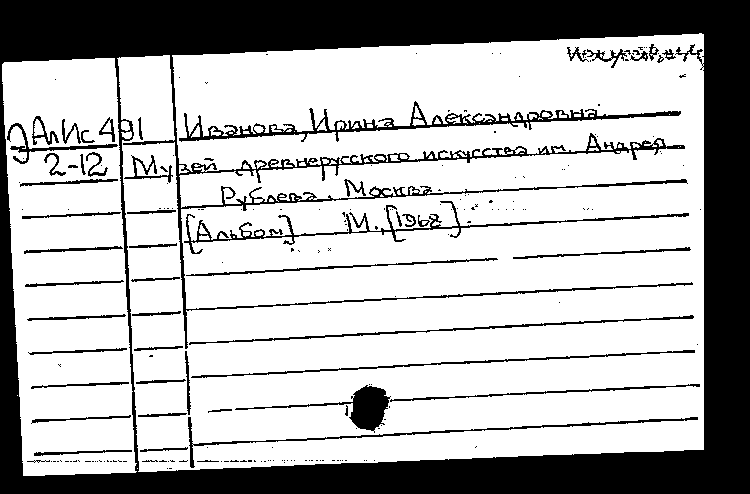 Искусств
ЭАлИс 491 Иванова, Ирина Александровна.
2-12 Музей древнерусского искусства им. Андрея
Рублева. Москва.
[Альбом]. М., [1968].